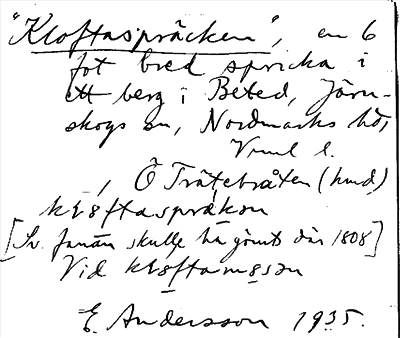 "Kloftaspräcken", en 6
fot bred spricka i
ett berg i Beted, Järn-
skogs sn, Nordmarks hd,
Vrml l.
—, Ö Trätetvåten (hmd)
kløftaspräkən
[Sv. skulle ha gömts där 1808]
Vid kløftamøsən
E. Andersson 1935.